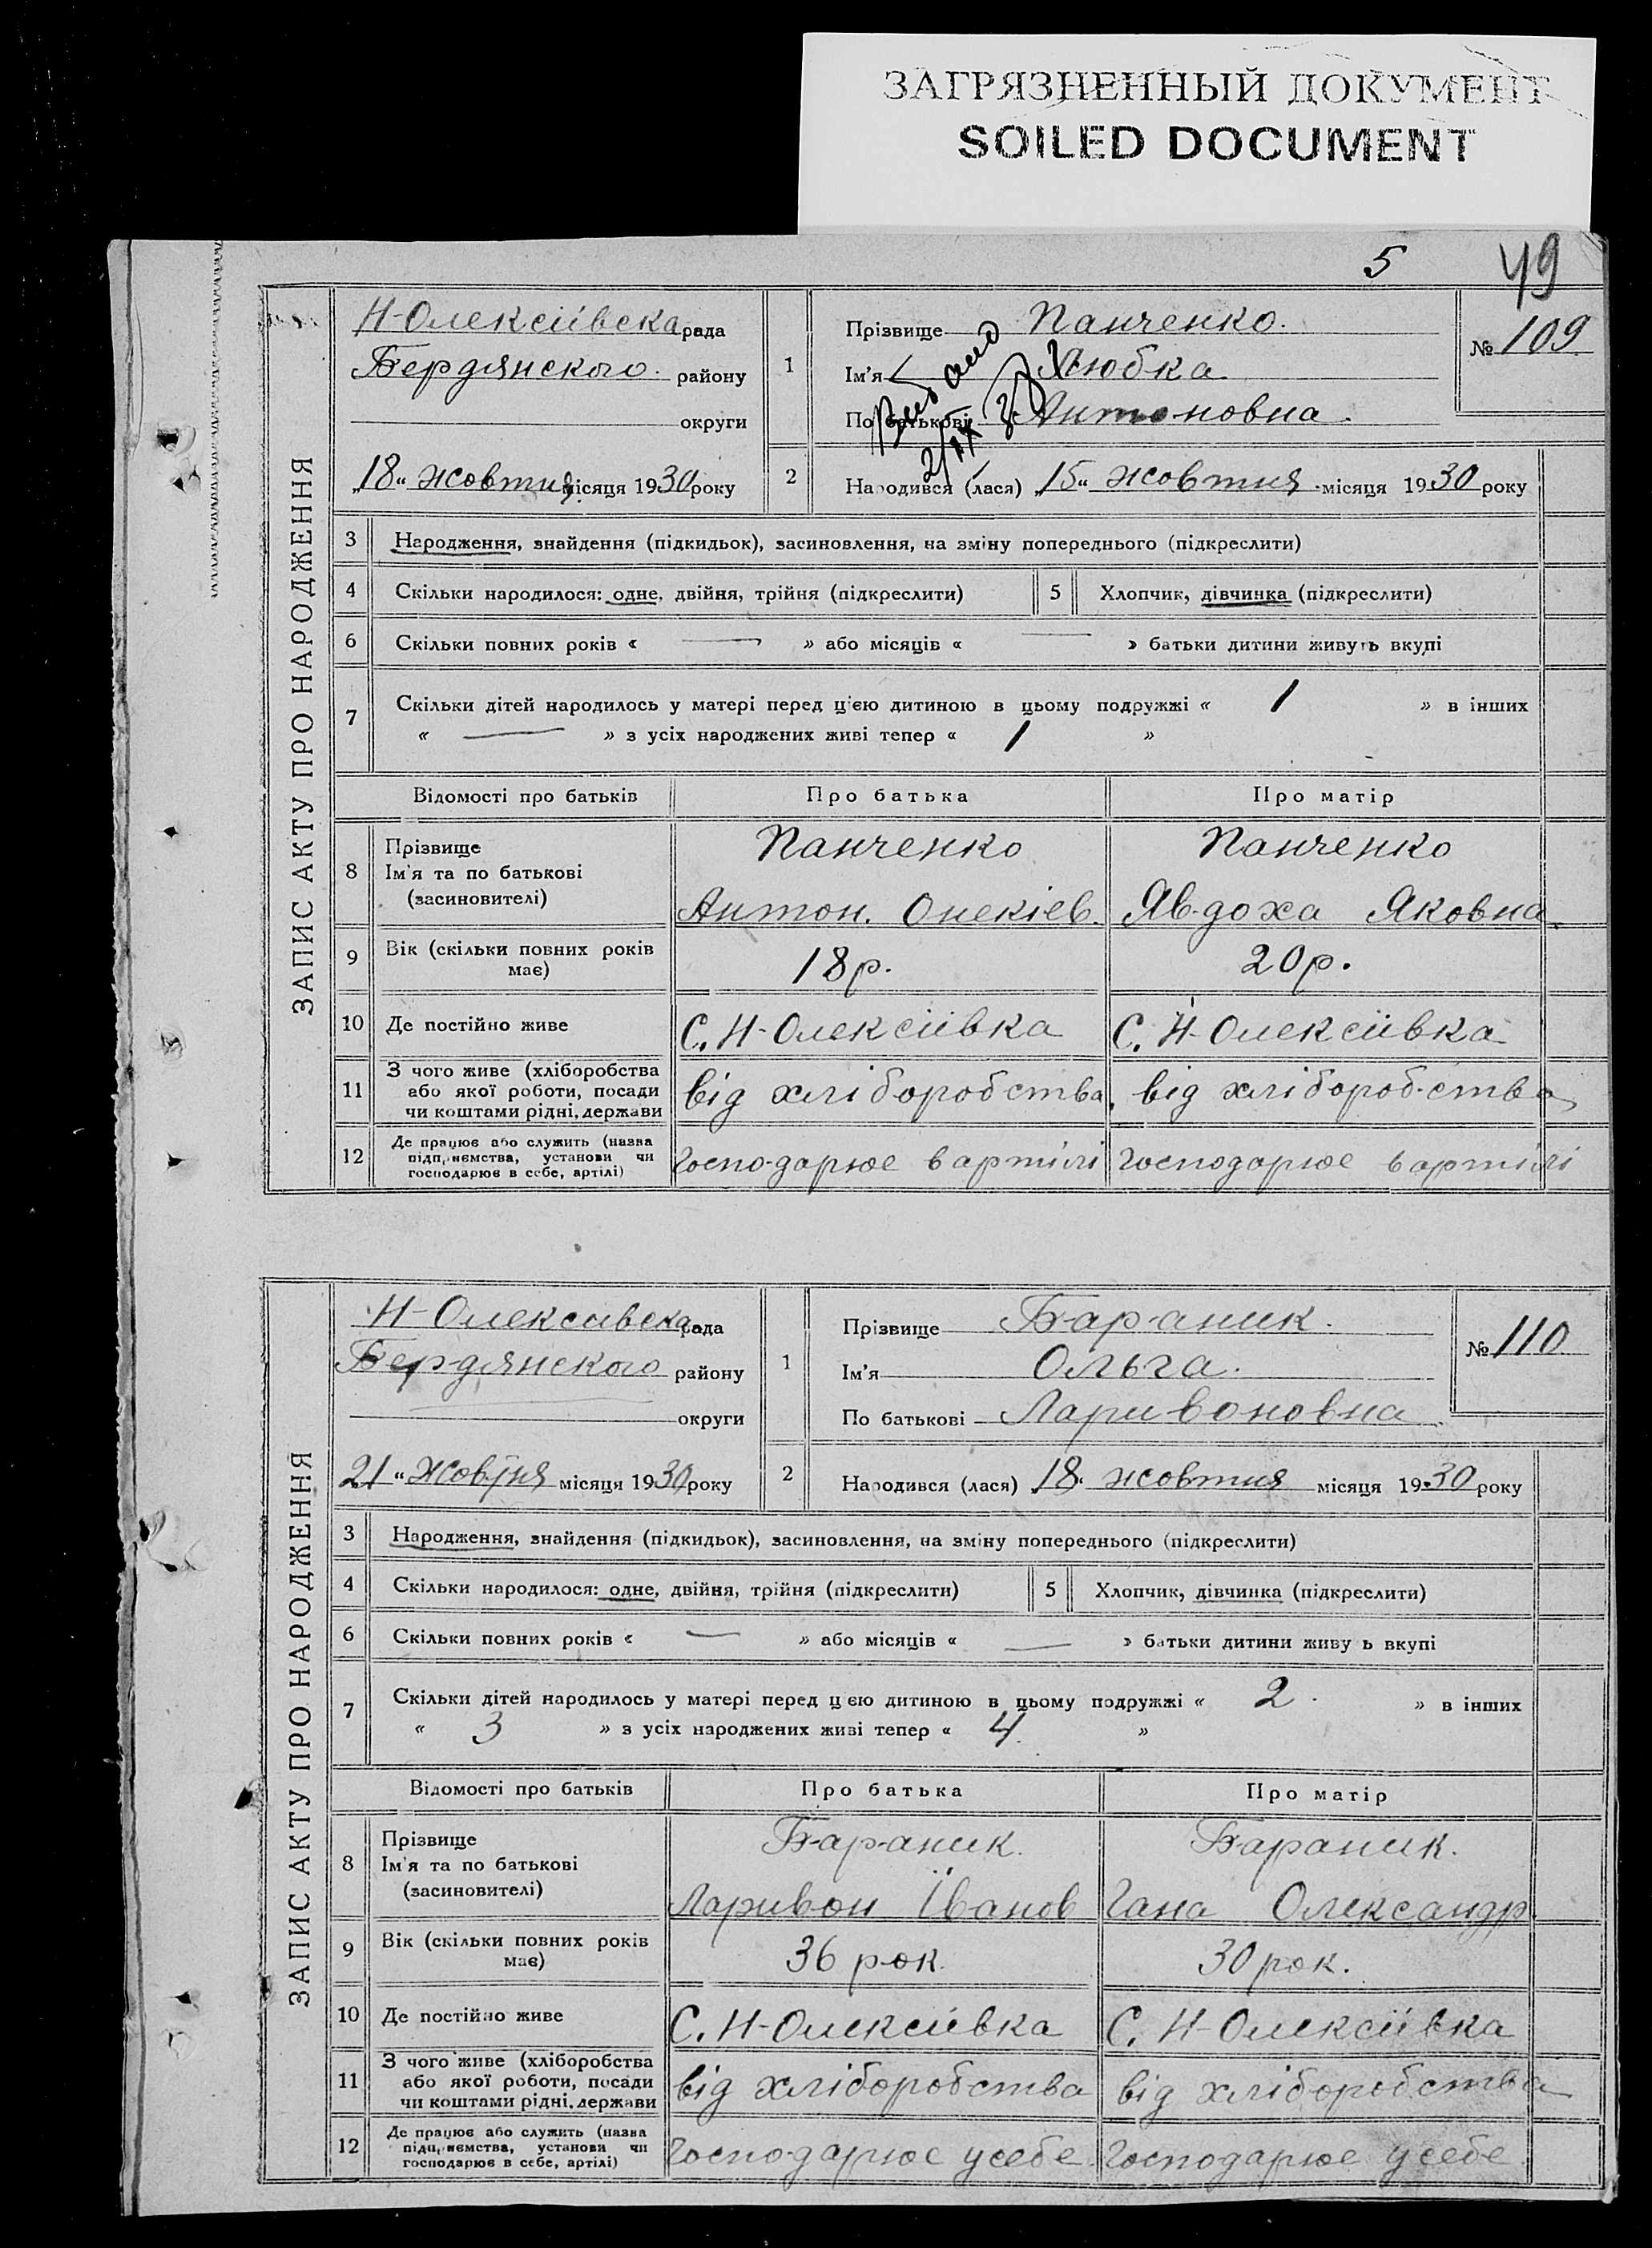 ЗАГРЯЗНЕННЫЙ ДОКУМЕНТ
SOILED DOCUMENT
5
49
ЗАПИС АКТУ ПРО НАРОДЖЕННЯ
Н-Олексіївска рада
Бердянского району
округи
"18" жовтня місяця 1930 року
1
Прізвище Панченко.
Ім'я Любка
По батькові Антоновна
№ 109
Видано
2 Народився (лася) "15" жовтня місяця 1930 року
3 Народження, знайдення (підкидьок), засиновлення, на зміну попереднього (підкреслити)
4 Скільки народилося: одне, двійня, трійня (підкреслити)
5 Хлопчик, дівчинка (підкреслити)
6 Скільки повних років « — » або місяців « — » батьки дитини живуть вкупі
7 Скільки дітей народилось у матері перед цією дитиною в цьому подружжі « 1 » в інших
« — » з усіх народжених живі тепер « 1 »
Відомості про батьків Про батька Про матір
8 Прізвище
Ім'я та по батькові
(засиновителі)
Панченко
Антон. Онекіев.
Панченко
Явдоха Яковна
9 Вік (скільки повних років має) 18 р. 20 р.
10 Де постійно живе С. Н-Олексіївка С. Н-Олексіївка
11 З чого живе (хліборобства
або якої роботи, посади
чи коштами рідні, держави
від хліборобства, від хліборобства
12 Де працює або служить (назва
підприємства, установи чи
господарює в себе, артілі)
господарює в артілі господарює в артілі
ЗАПИС АКТУ ПРО НАРОДЖЕННЯ
Н-Олексіївска рада
Бердянского району
округи
21" Жовтня місяця 1930 року
1
Прізвище Бараник.
Ім'я Ольга.
По батькові Ларивоновна
№ 110
2 Народився (лася) "18" жовтня місяця 1930 року
3 Народження, знайдення (підкидьок), засиновлення, на зміну попереднього (підкреслити)
4 Скільки народилося: одне, двійня, трійня (підкреслити)
5 Хлопчик, дівчинка (підкреслити)
6 Скільки повних років « — » або місяців « — » батьки дитини живу ь вкупі
7 Скільки дітей народилось у матері перед цією дитиною в цьому подружжі « 2 » в інших
« 3 » з усіх народжених живі тепер « 4 »
Відомості про батьків Про батька Про матір
8 Прізвище
Ім'я та по батькові
(засиновителі)
Бараник.
Ларивон Іванов
Бараник.
Гана Олександр.
9 Вік (скільки повних років має) 36 рок. 30 рок.
10 Де постійно живе С. Н-Олексіївка С. Н-Олексіївка
11 З чого живе (хліборобства
або якої роботи, посади
чи коштами рідні, держави
від хліборобства від хліборобства
12 Де працює або служить (назва
підприємства, установи чи
господарює в себе, артілі)
господарює у себе. господарює у себе.